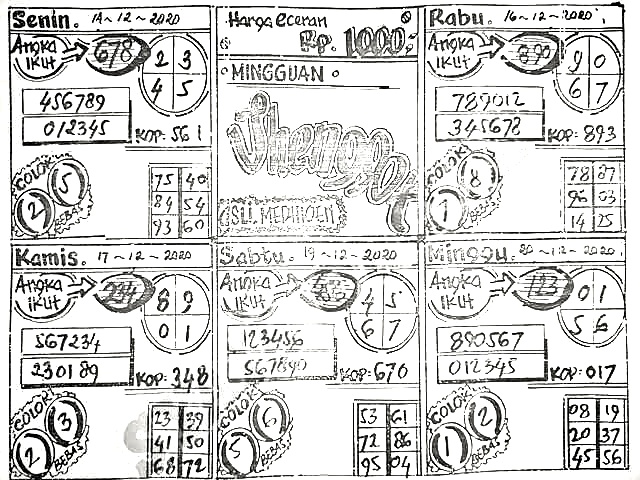 Senin. 14-12-2020
Angka
IKUT
678
2 3
4 5
456789
012345
KOP: 561
COLOK
2 5
BEBAS
75 40
84 54
93 60
Harga eceran
Rp. 1000,-
MINGGUAN
Rabu. 16-12-2020
Angka
IKUT
890
9 0
6 7
789012
345678
KOP: 893
COLOK
1 8
BEBAS
78 87
96 03
14 25
Kamis. 17-12-2020
Angka
IKUT
234
8 9
0 1
567234
230189
KOP: 348
COLOK
2 3
BEBAS
23 39
41 50
68 72
Sabtu. 19-12-2020
Angka
IKUT
4 5
6 7
123456
567890
KOP: 670
COLOK
5 6
BEBAS
53 61
72 86
95 04
Minggu. 20-12-2020
Angka
IKUT
123
0 1
5 6
890567
012345
KOP: 017
COLOK
1 2
BEBAS
08 19
20 37
45 56